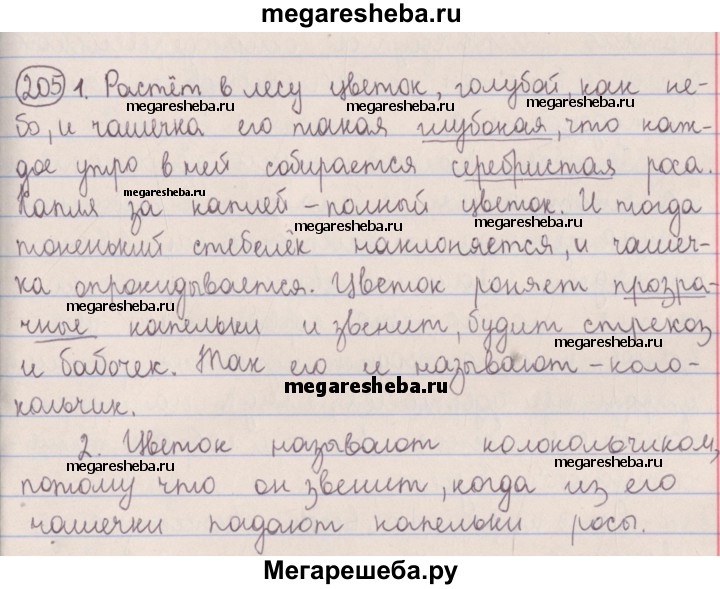 megaresheba.ru
205 1. Растёт в лесу цветок, голубой, как не-
megaresheba.ru megaresheba.ru
бо, и чашечка его такая глубокая, что каж-
megaresheba.ru megaresheba.ru
дое утро в ней собирается серебристая роса.
megaresheba.ru
Капля за каплей – полный цветок. И тогда
megaresheba.ru megaresheba.ru
тоненький стебелёк наклоняется, и чашеч-
ка опрокидывается. Цветок роняет прозра-
megaresheba.ru megaresheba.ru
чные капельки и звенит, будит стрекоз
и бабочек. Так его и называют – коло-
megaresheba.ru
кольчик.
2. Цветок называют колокольчиком,
megaresheba.ru megaresheba.ru
потому что он звенит, когда из его
чашечки падают капельки росы.
Мегарешеба.ру